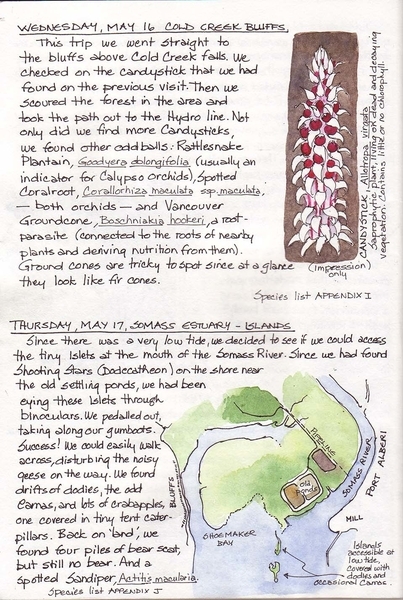 WEDNESDAY, MAY 16 COLD CREEK BLUFFS,
This trip we went straight to
the bluffs above Cold Creek falls. We
checked on the candystick that we had
found on the previous visit. Then we
scoured the forest in the area and
took the path out to the Hydro line. Not
only did we find more Candysticks,
we found other oddballs: Rattlesnake
Plantain, Goodyera oblongifolia (usually an
indicator for Calypso orchids), Spotted
Coralroot, Corallorhiza maculata ssp. maculata,
— both orchids — and Vancouver
Groundcone, Boschniakia hookeri, a root-
parasite (connected to the roots of nearby
plants and deriving nutrition from them).
Ground cones are tricky to spot since at a glance
they look like fir cones.
CANDYSTICK, Allotropa virgata
Saprophytic plant, living on dead and decaying
vegetation. Contains little or no chlorophyll.
(impression only)
Species list APPENDIX I
THURSDAY, MAY 17, SOMASS ESTUARY - ISLANDS
Since there was a very low tide, we decided to see if we could access
the tiny Islets at the mouth of the Somass River. Since we had found
Shooting Stars (Dodecatheon) on the shore near
the old settling ponds, we had been
eyeing these Islets through
binoculars. We pedalled out,
taking along our gumboots.
Success! We could easily walk
across, disturbing the noisy
geese on the way. We found
drifts of dodies, the odd
Camas, and lots of crabapples,
one covered in tiny tent cater-
pillars. Back on 'land', we
found four piles of bear scat,
but still no bear. And a
Spotted Sandpiper, Actitis macularia.
Species list APPENDIX J
PIPELINE
Old Ponds
SOMASS RIVER
PORT ALBERNI
BLUFFS
SHOEMAKER
BAY
MILL
Islands
accessible at
low tide,
covered with
dodies and
occasional Camas.